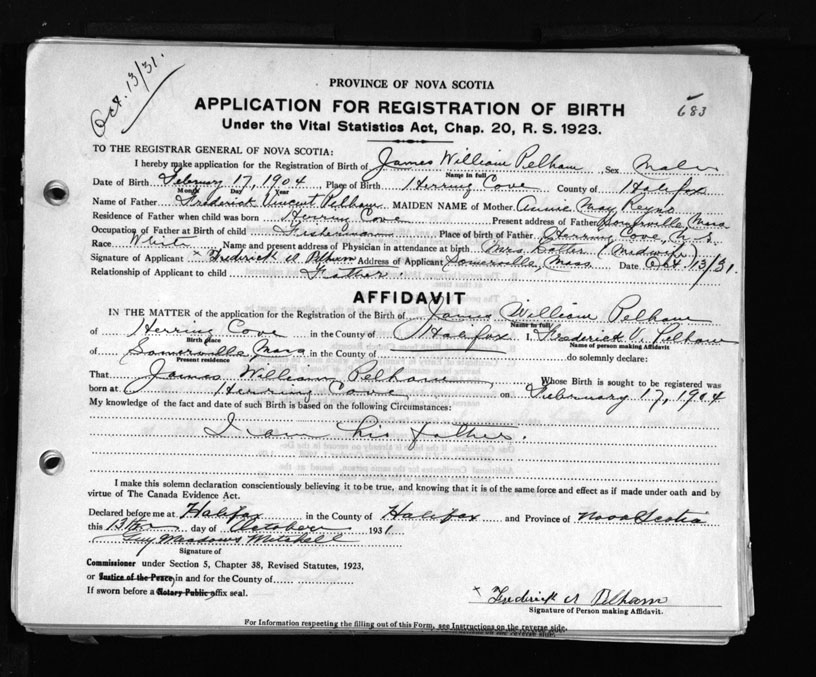 Oct. 13/31.
683
PROVINCE OF NOVA SCOTIA
APPLICATION FOR REGISTRATION OF BIRTH
Under the Vital Statistics Act, Chap. 20, R. S. 1923.
TO THE REGISTRAR GENERAL OF NOVA SCOTIA:
I hereby make application for the Registration of Birth of James William Pelham Sex Male
Name in full
Date of Birth February 17, 1904 Place of Birth Herring Cove County of Halifax
Month Day Year
Name of Father Frederick Vincent Pelham MAIDEN NAME of Mother Annie May Reyno
Residence of Father when child was born Herring Cove Present address of Father Somerville, Mass
Occupation of Father at Birth of child Fisherman Place of birth of Father Herring Cove, N.S.
Race White Name and present address of Physician in attendance at birth Mrs. (Midwife)
Signature of Applicant x Frederick V Pelham Address of Applicant Somerville, Mass Date Oct 13/31.
Relationship of Applicant to child Father.
AFFIDAVIT
IN THE MATTER of the application for the Registration of the Birth of James William Pelham
Name in full
of Herring Cove in the County of Halifax I, Frederick V. Pelham
Birth place Name of person making Affidavit
of Somerville Mass in the County of do solemnly declare:
Present residence
That James William Pelham Whose Birth is sought to be registered was
born at Herring Cove on February 17, 1904
My knowledge of the fact and date of such Birth is based on the following Circumstances:
I am his father.
I make this solemn declaration conscientiously believing it to be true, and knowing that it is of the same force and effect as if made under oath and by
virtue of The Canada Evidence Act.
Declared before me at Halifax in the County of Halifax and Province of Nova Scotia
this 13th day of October 1931
Guy Meadows Mitchell
Signature of
Commissioner under Section 5, Chapter 38, Revised Statutes, 1923,
or Justice of the Peace, in and for the County of
If sworn before a Notary Public affix seal.
x Frederick V Pelham
Signature of Person making Affidavit.
For Information respecting the filling out of this Form, see Instructions on the reverse side.